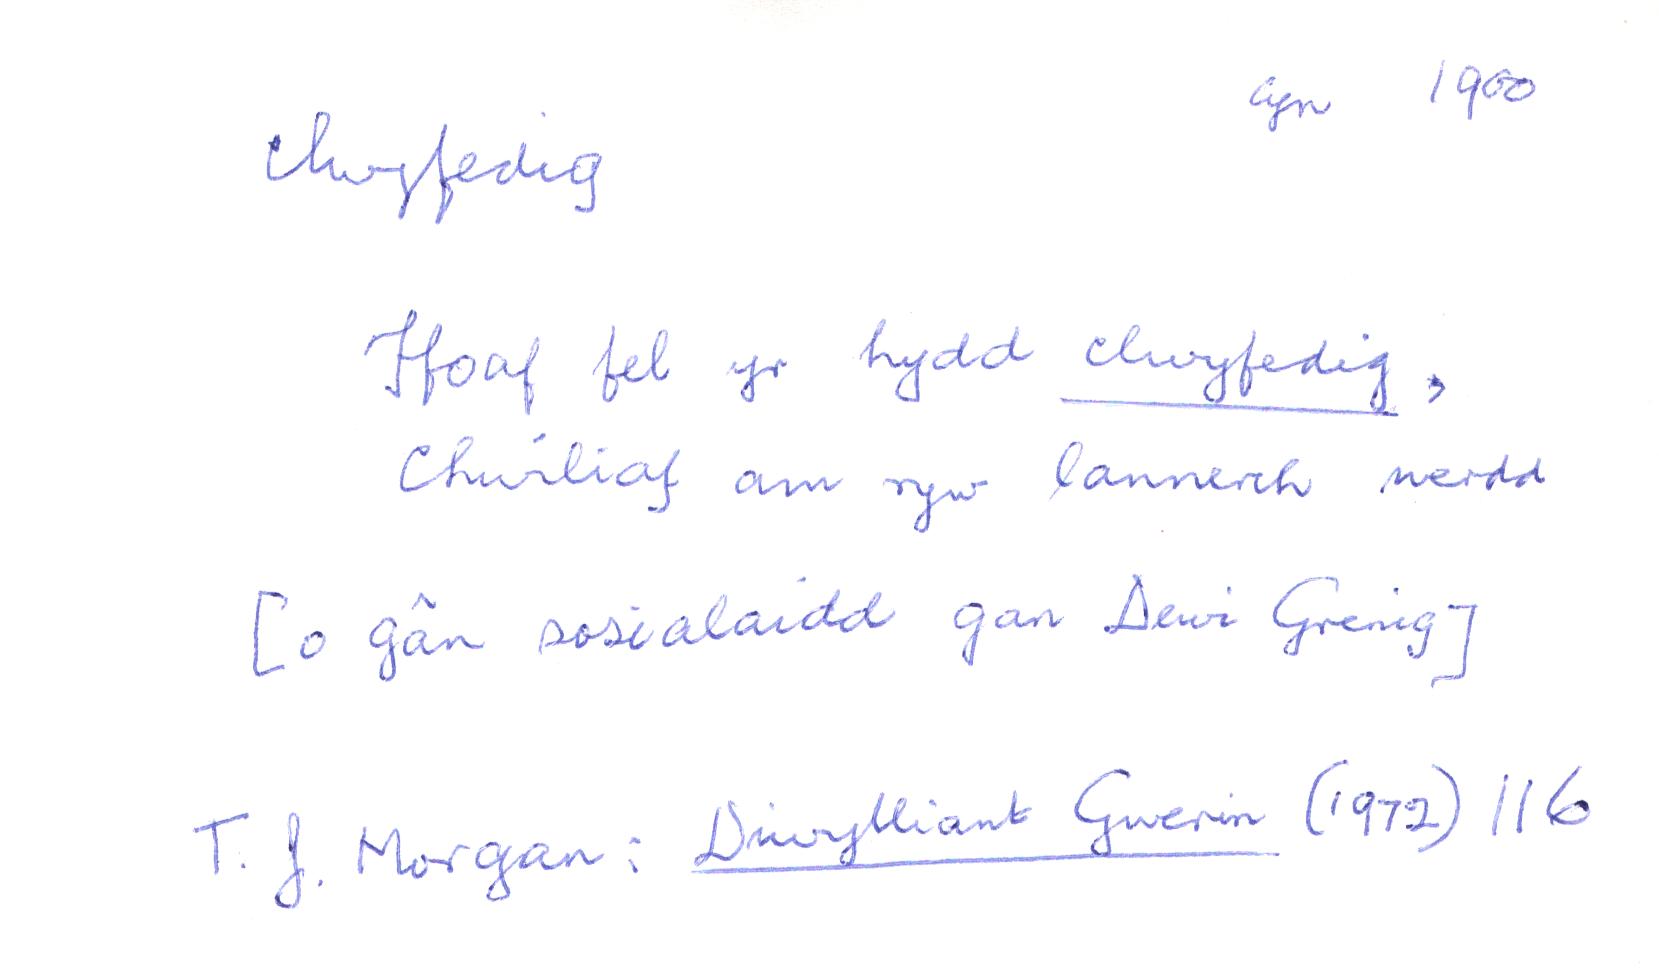 cyn 1900
clwyfedig
Ffoaf fel yr hydd clwyfedig,
Chwiliaf am ryw lannerch werdd
[o gân sosialaidd gan Dewi Grenig]
T. J. Morgan: Diwylliant Gwerin (1972) 116